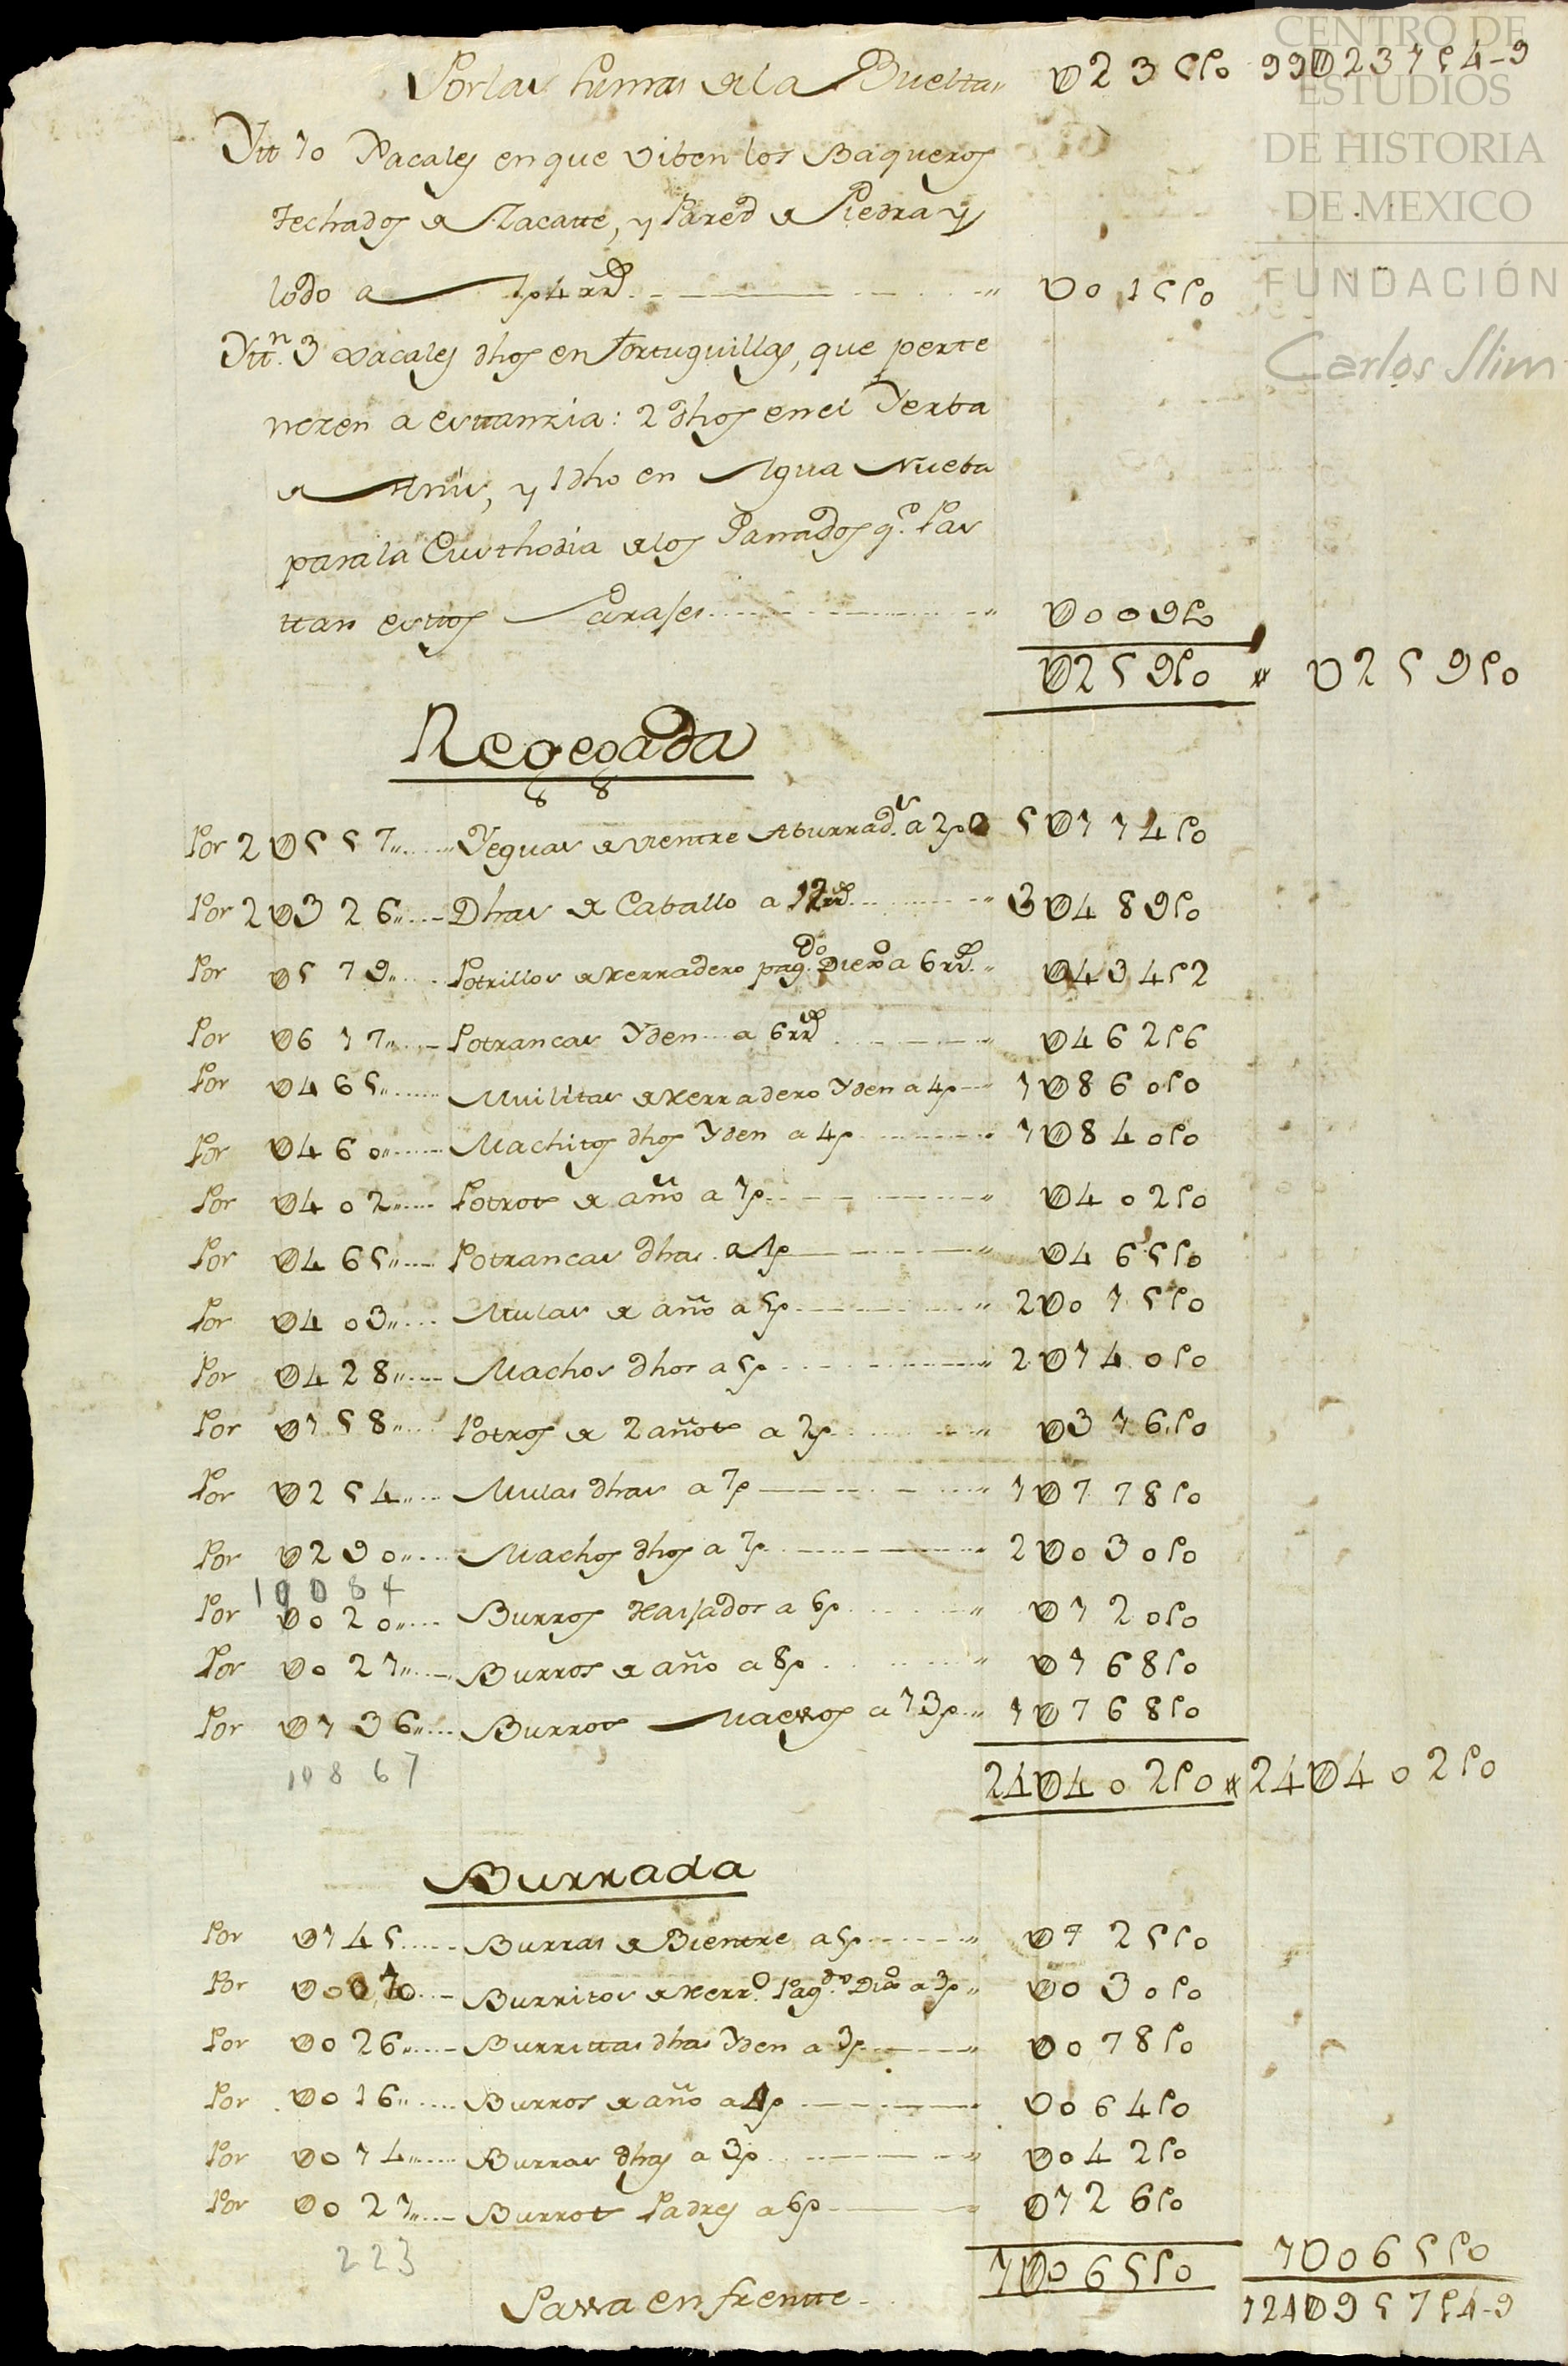 Por las sumas de la Buelta U235p0 99U231p4-9
Ytt 10 Xacales en que viben los Baqueros
techados de Zacatte, y Pared de Piedra y
lodo a 1p4rrs U015p0
Yttn. 3 xacales dhos en tortuguillas, que perte
nezen a esttanzia: 2 dhos en el Yerba
de Anis, y 1 dho en Agua Nueba
para la Custhodia de los Ganados qe. Pas
ttan esttos Parajes U009p0
U259p0 U259p0
Regegada
Por 2U557 Yeguas de vientre Aburrads. a 2p 5U114p0
Por 2U326 Dhas de Caballo a 12rrs 3U489p0
Por U579 Potrillos de herradero pagdo. Diezo a 6rrs U434p2
Por U617 Potrancas Yden a 6rrs U462p6
Por U465 Mulitas de herradero Yden a 4p 1U860p0
Por U460 Machitos dhos Yden a 4p 1U840p0
Por U402 Potros de año a 1p U402p0
Por U465 Potrancas dhas a 1p U465p0
Por U403 Mulas de año a 5p 2U015p0
Por U428 Machos dhos a 5p 2U140p0
Por U158 Potros de 2 años a 2p U316p0
Por U254 Mulas dhas a 7p 1U778p0
Por U290 Machos dhos a 7p 2U030p0
10084
Por U020 Burros a 6p U120p0
Por U021 Burros de año a 8p U168p0
Por U136 Burros Maestros a 13p 1U768p0
10867
24U402p0 24U402p0
Burrada
Por U145 Burras de Bientre a 5p U725p0
Por U010 Burritos de herro. Pagdo. Dizo a 3p U030p0
Por U026 Burrittas dhas Yden a 3p U078p0
Por U016 Burros de año a 4p U064p0
Por U014 Burras dhas a 3p U042p0
Por U021 Burros Padres a 6p U126p0
223
1U065p0 1U065p0
Passa en frentte 124U957p4-9
CENTRO DE
ESTUDIOS
DE HISTORIA
DE MEXICO
FUNDACIÓN
Carlos Slim